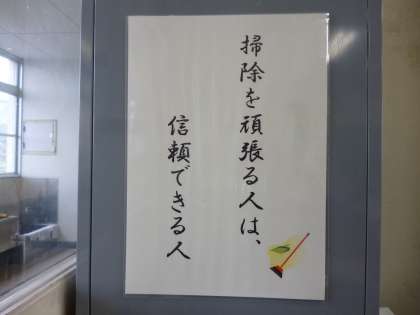 掃除を頑張る人は、
信頼できる人